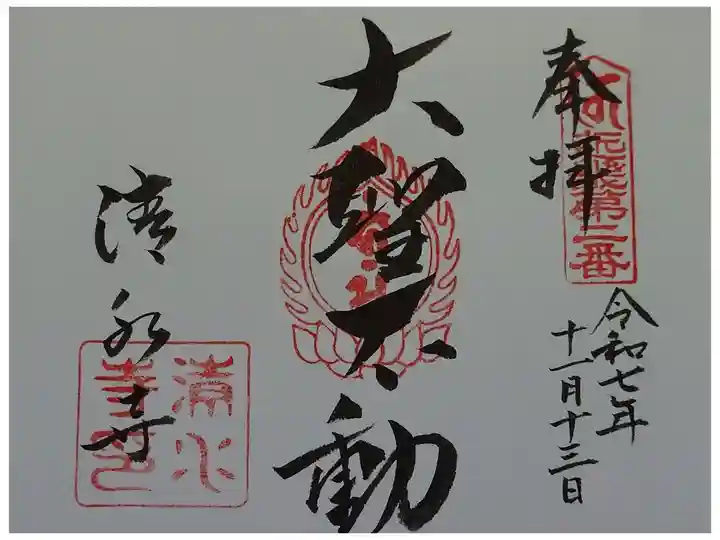 奉拝
令和七年
十一月十三日
大聖不動
清水寺
清水
寺印